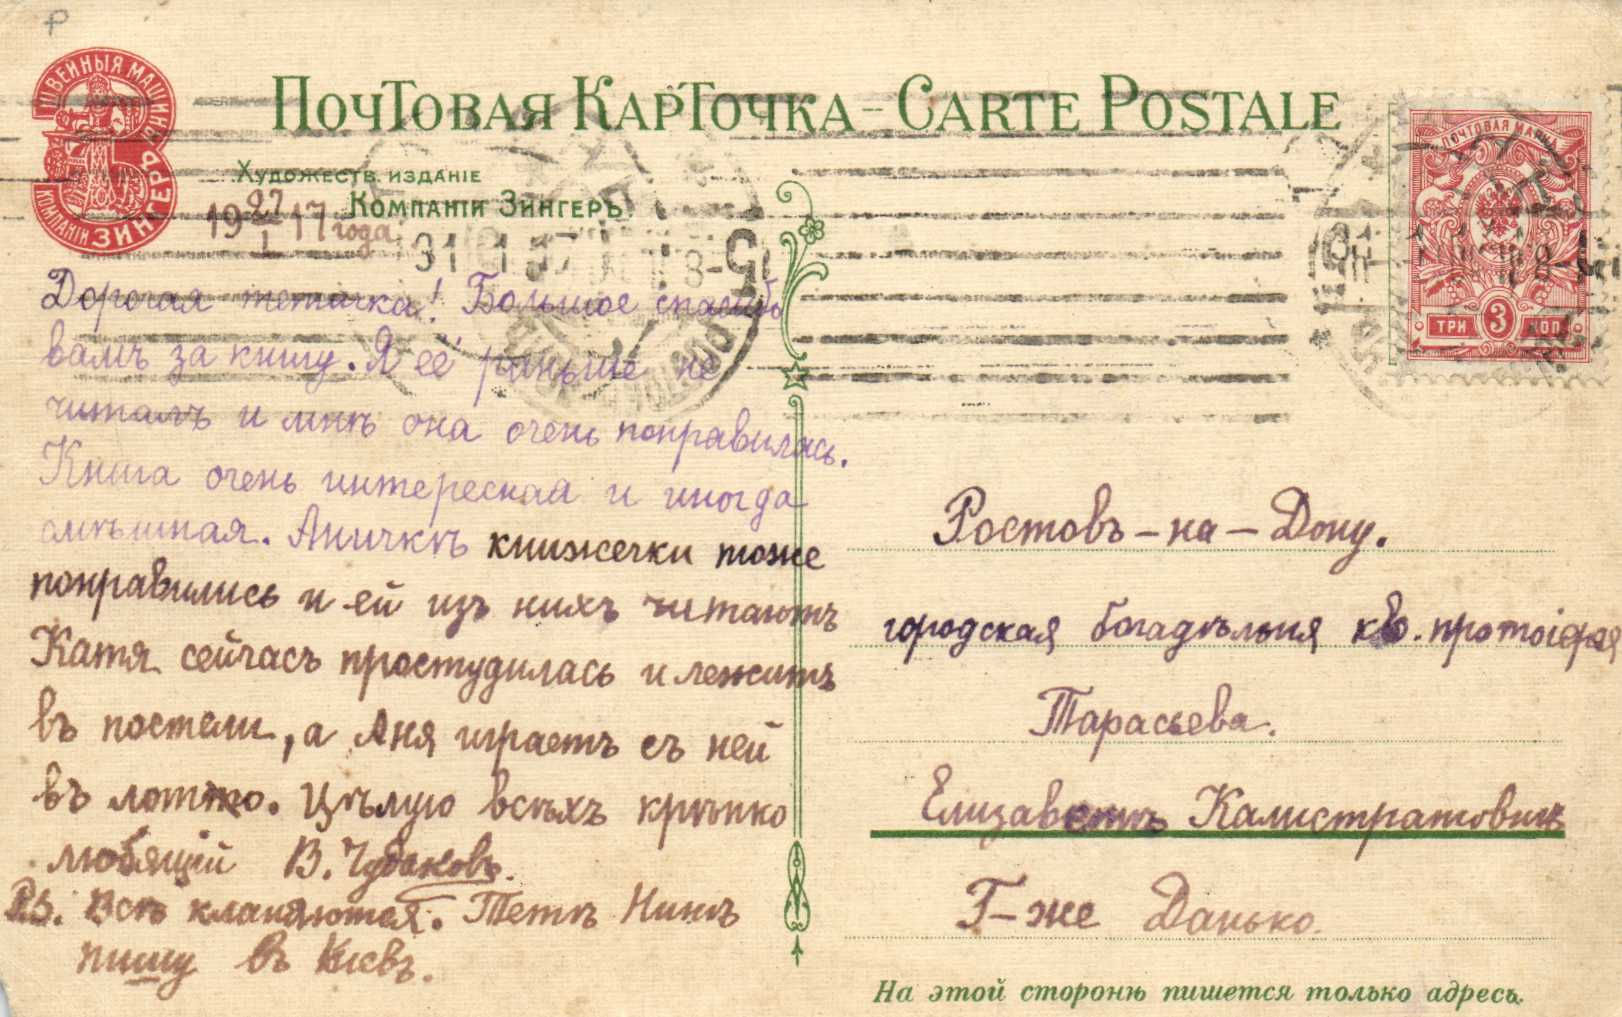 Почтовая Карточка - Carte Postale
ШВЕЙНЫЯ МАШИНЫ
КОМПАНІИ ЗИНГЕРЪ
Художеств. изданіе
Компаніи Зингеръ.
19 27/I 17 года
31 1 17
5
ПОЧТОВАЯ МАРКА
ТРИ 3 КОП
Дорогая тетичка! Большое спасибо
вамъ за книгу. Я её раньше не
читалъ и мнѣ она очень понравилась.
Книга очень интересная и иногда
смѣшная. Аничкѣ книжечки тоже
понравились и ей изъ нихъ читаютъ
Катя сейчасъ простудилась и лежитъ
въ постели, а Аня играетъ съ ней
въ лотто. Цѣлую всѣхъ крѣпко
любящій В. Чубаковъ.
P.S. Всѣ кланяются. Тетѣ Нинѣ
пишу въ Кіевъ.
Ростовъ-на-Дону.
городская богадѣльня кв. протоіерея
Тарасьева.
Елизаветѣ Калистратовнѣ
Г-же Данько.
На этой сторонѣ пишется только адресъ.